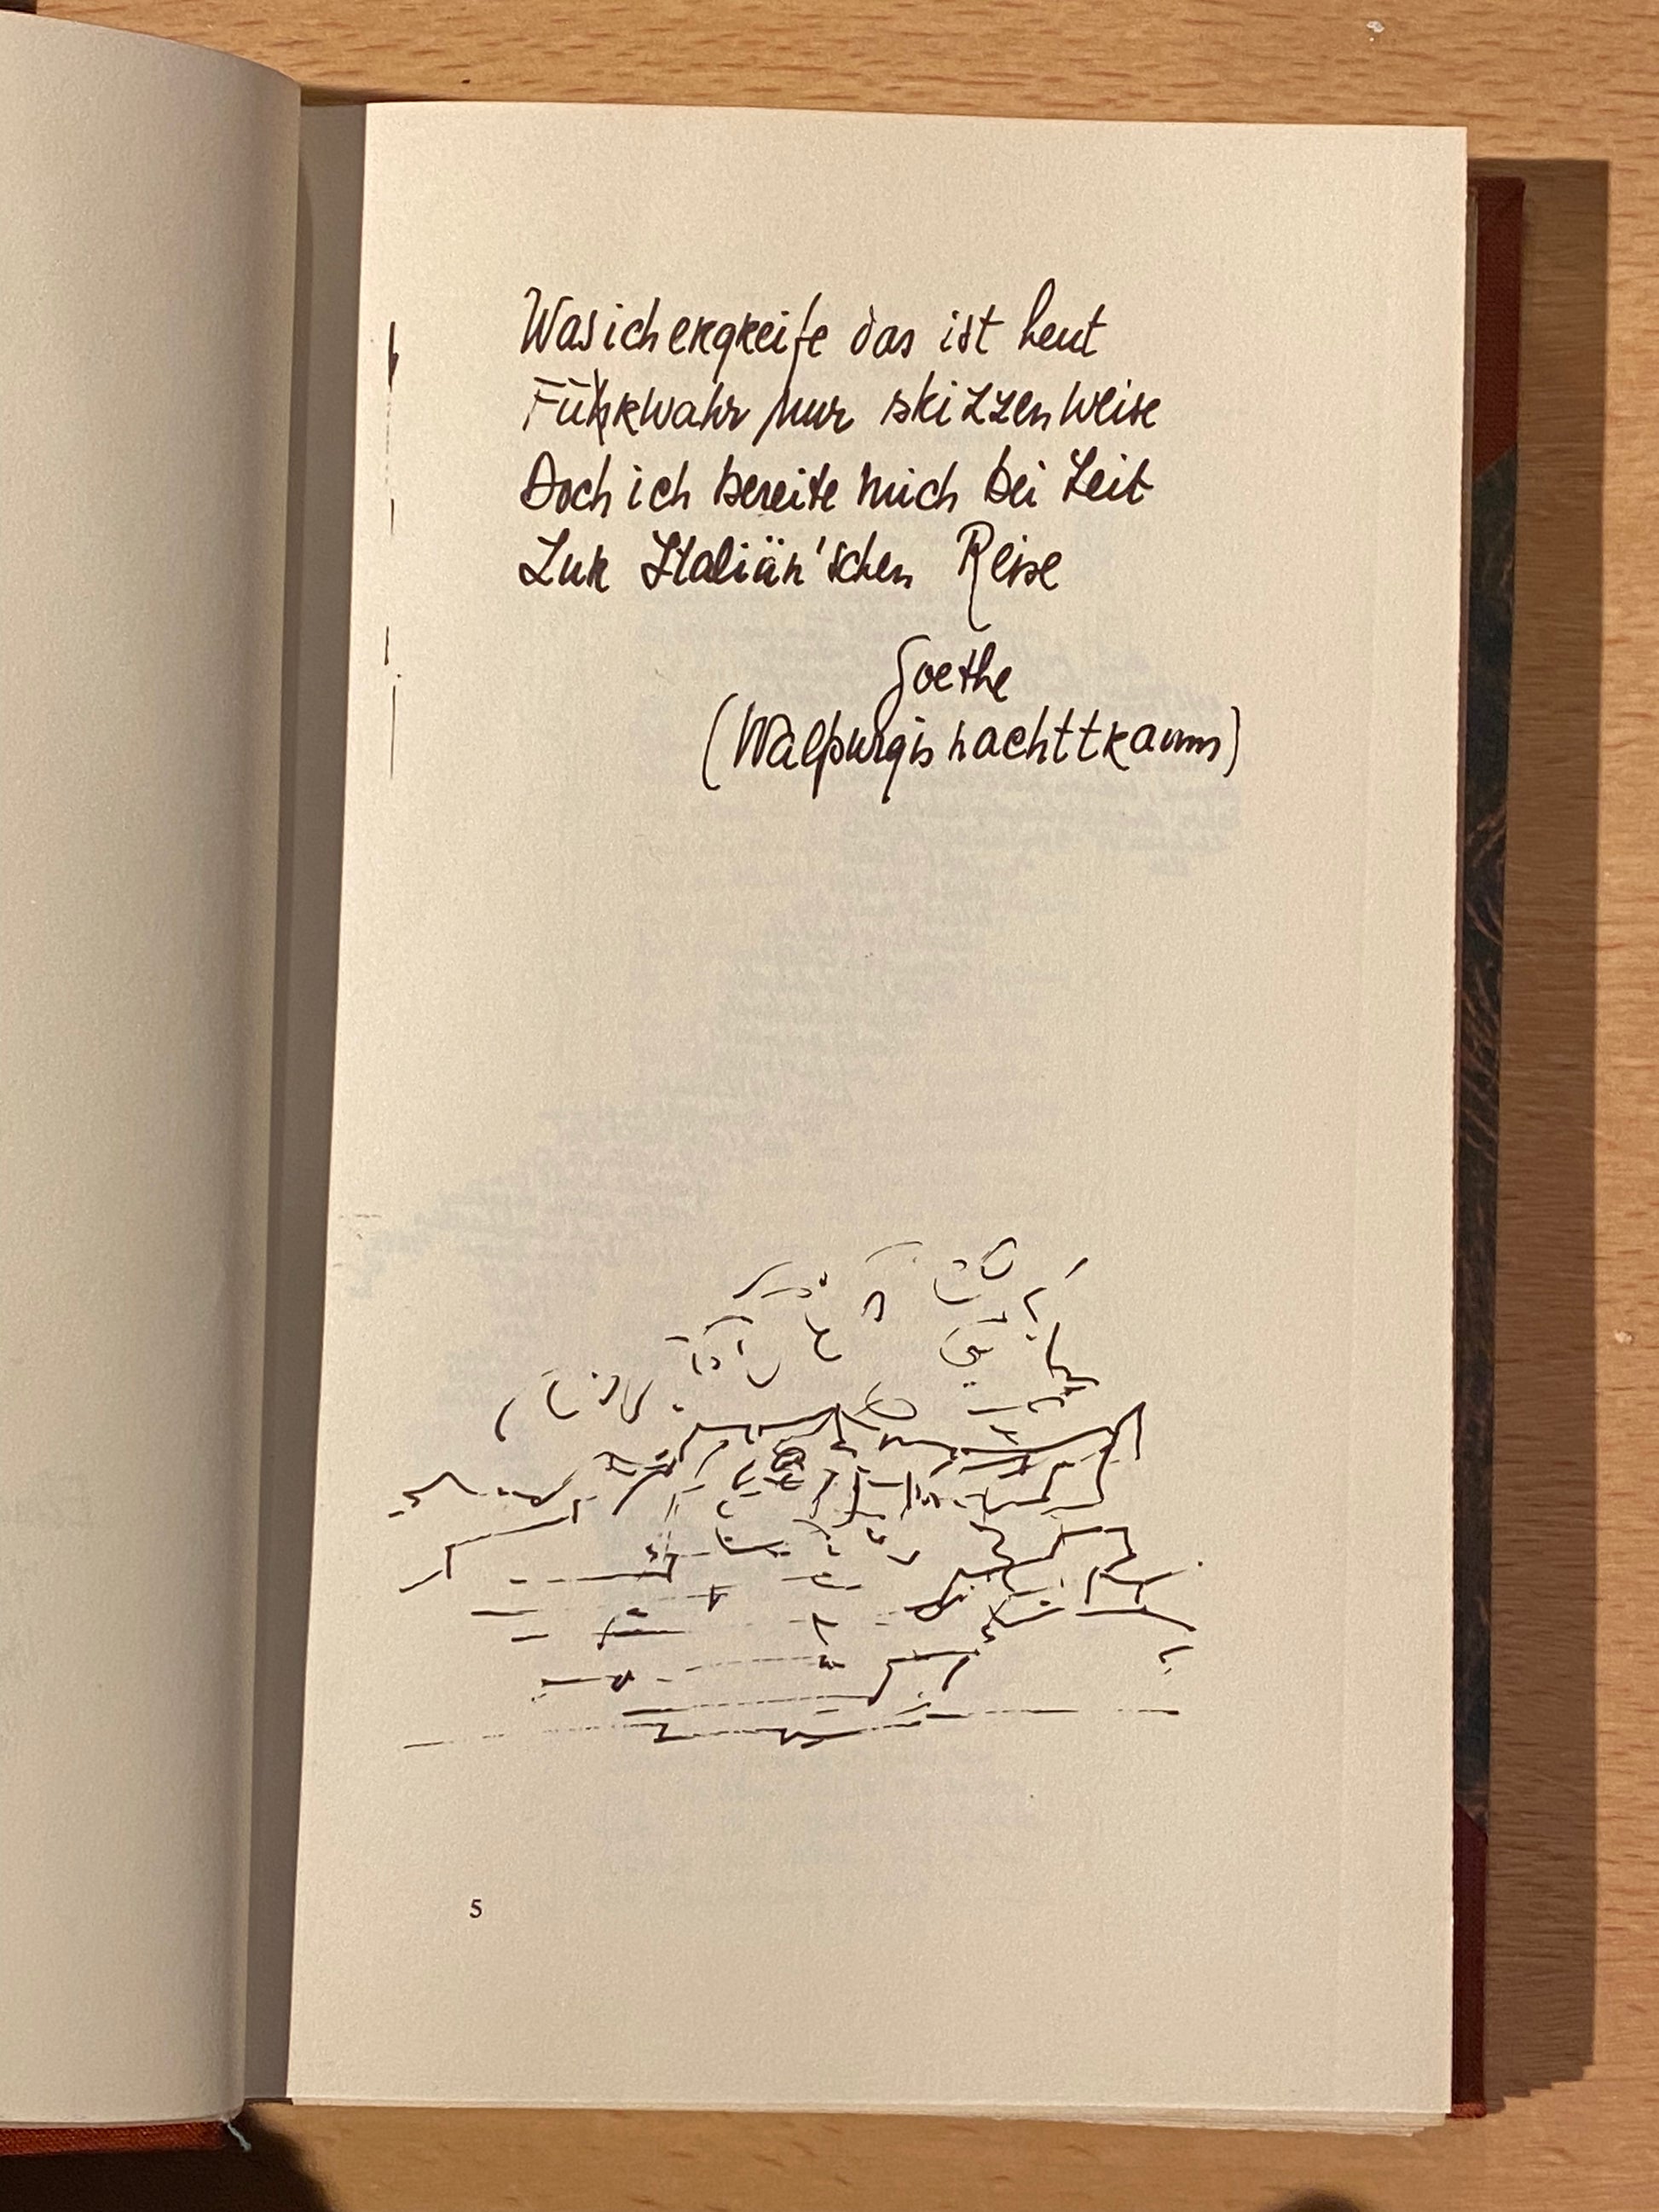 Was ich ergreife das ist heut
Fürwahr nur skizzenweise
Doch ich bereite mich bei Zeit
Zur Italiän'schen Reise
Goethe
(Walpurgisnachttraum)
5